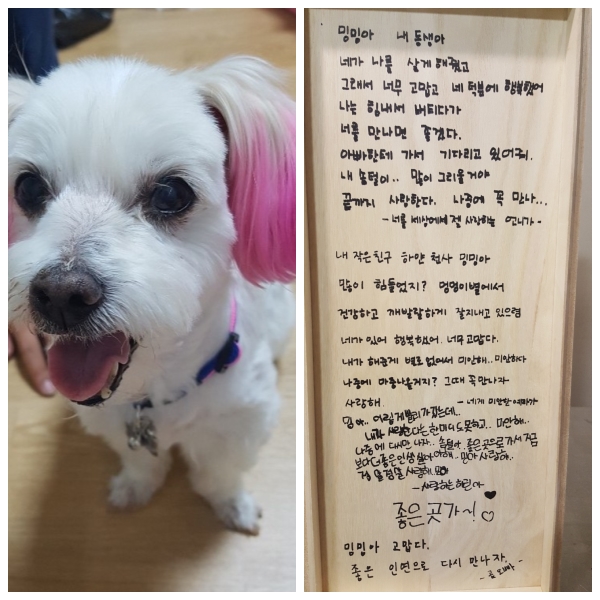 밍밍아 내 동생아
네가 나를 살게 해줬고
그래서 너무 고맙고 네 덕분에 행복했어
나는 힘내서 버티다가
너를 만나면 좋겠다.
아빠한테 가서 기다리고 있어줘.
내 솜털이.. 많이 그리울거야
끝까지 사랑한다. 나중에 꼭 만나...
- 너를 세상에서 젤 사랑하는 언니가 -
내 작은친구 하얀 천사 밍밍아
많이 힘들었지? 멍멍이별에서
건강하고 개발랄하게 잘지내고 있으렴
네가 있어 행복했어. 너무고맙다.
내가 해준게 별로 없어서 미안해.. 미안하다
나중에 마중나올거지? 그때 꼭만나자
사랑해. - 네게 미안한 엄마가
밍아..
사랑한다는 한마디도 못하고.. 미안해..
나중에 다시만나자.. 좋은곳으로가서 지금
보다 더좋은인생 살아야해.. 사랑해..
정말정말 사랑해
- 사랑하는
좋은 곳 가~!
밍밍아 고맙다.
좋은 인연으로 다시 만나자.